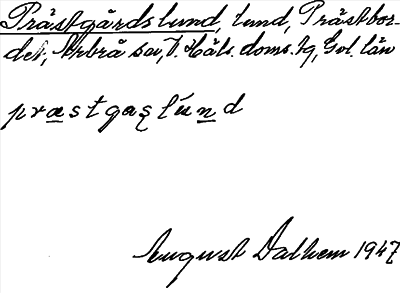 Prästgårdslund, lund, Prästbor-
det, Arbrå sn, V. Häls. doms. tg, Gvl. län
præstgaʂlund
August Dalhem 1947